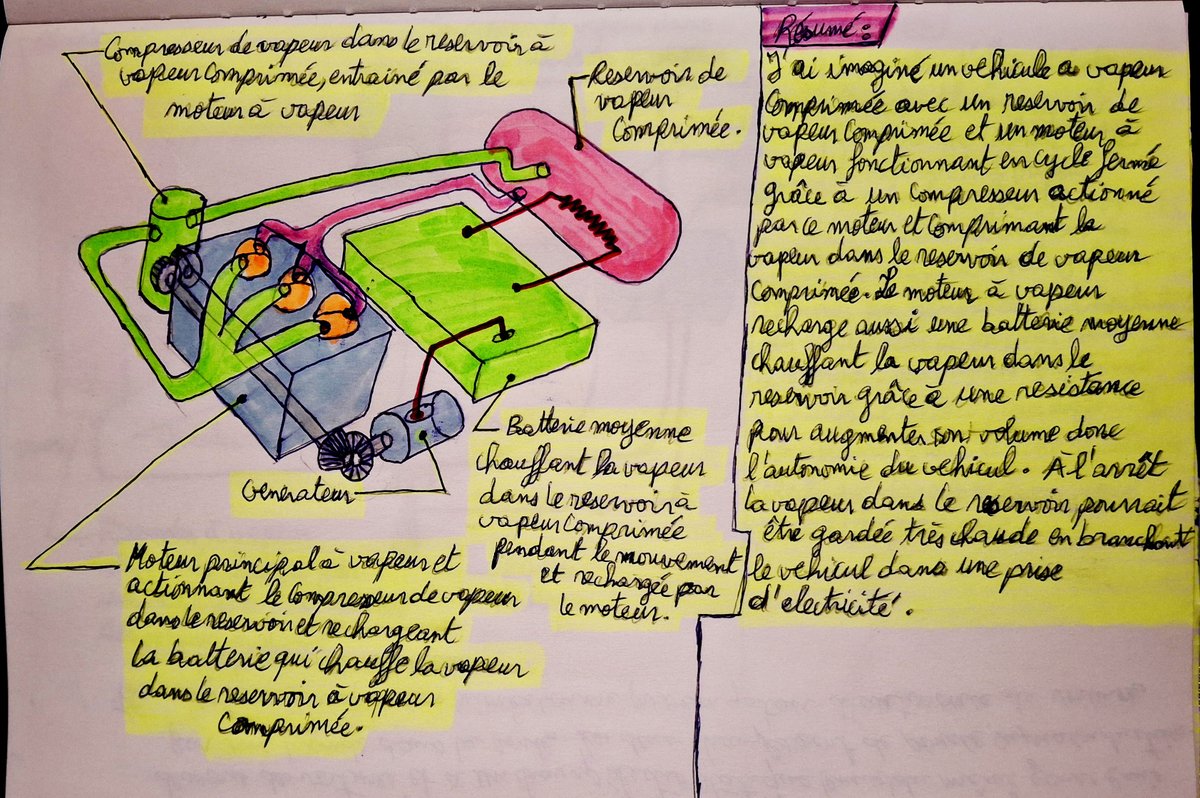 Compresseur de vapeur dans le reservoir à
vapeur Comprimée, entrainé par le
moteur à vapeur
Reservoir de
vapeur
Comprimée.
Generateur
Batterie moyenne
chauffant la vapeur
dans le reservoir à
vapeur Comprimée
pendant le mouvement
et rechargée par
le moteur.
Moteur principal à vapeur et
actionnant le Compresseur de vapeur
dans le reservoir et rechargeant
la batterie qui chauffe la vapeur
dans le reservoir à vapeur
Comprimée.
Résumé :
J'ai imaginé un vehicule a vapeur
Comprimée avec un reservoir de
vapeur Comprimée et un moteur à
vapeur fonctionnant en cycle fermé
grâce à un Compresseur actionné
par ce moteur et Comprimant la
vapeur dans le reservoir de vapeur
Comprimée. Le moteur à vapeur
recharge aussi une batterie moyenne
chauffant la vapeur dans le
reservoir grâce à une resistance
pour augmenter son volume donc
l'autonomie du vehicul. À l'arrêt
la vapeur dans le reservoir pourrait
être gardée très chaude en branchant
le vehicul dans une prise
d'electricité.